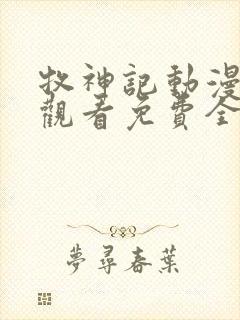 牧神記動漫
觀看免費全
夢尋春葉